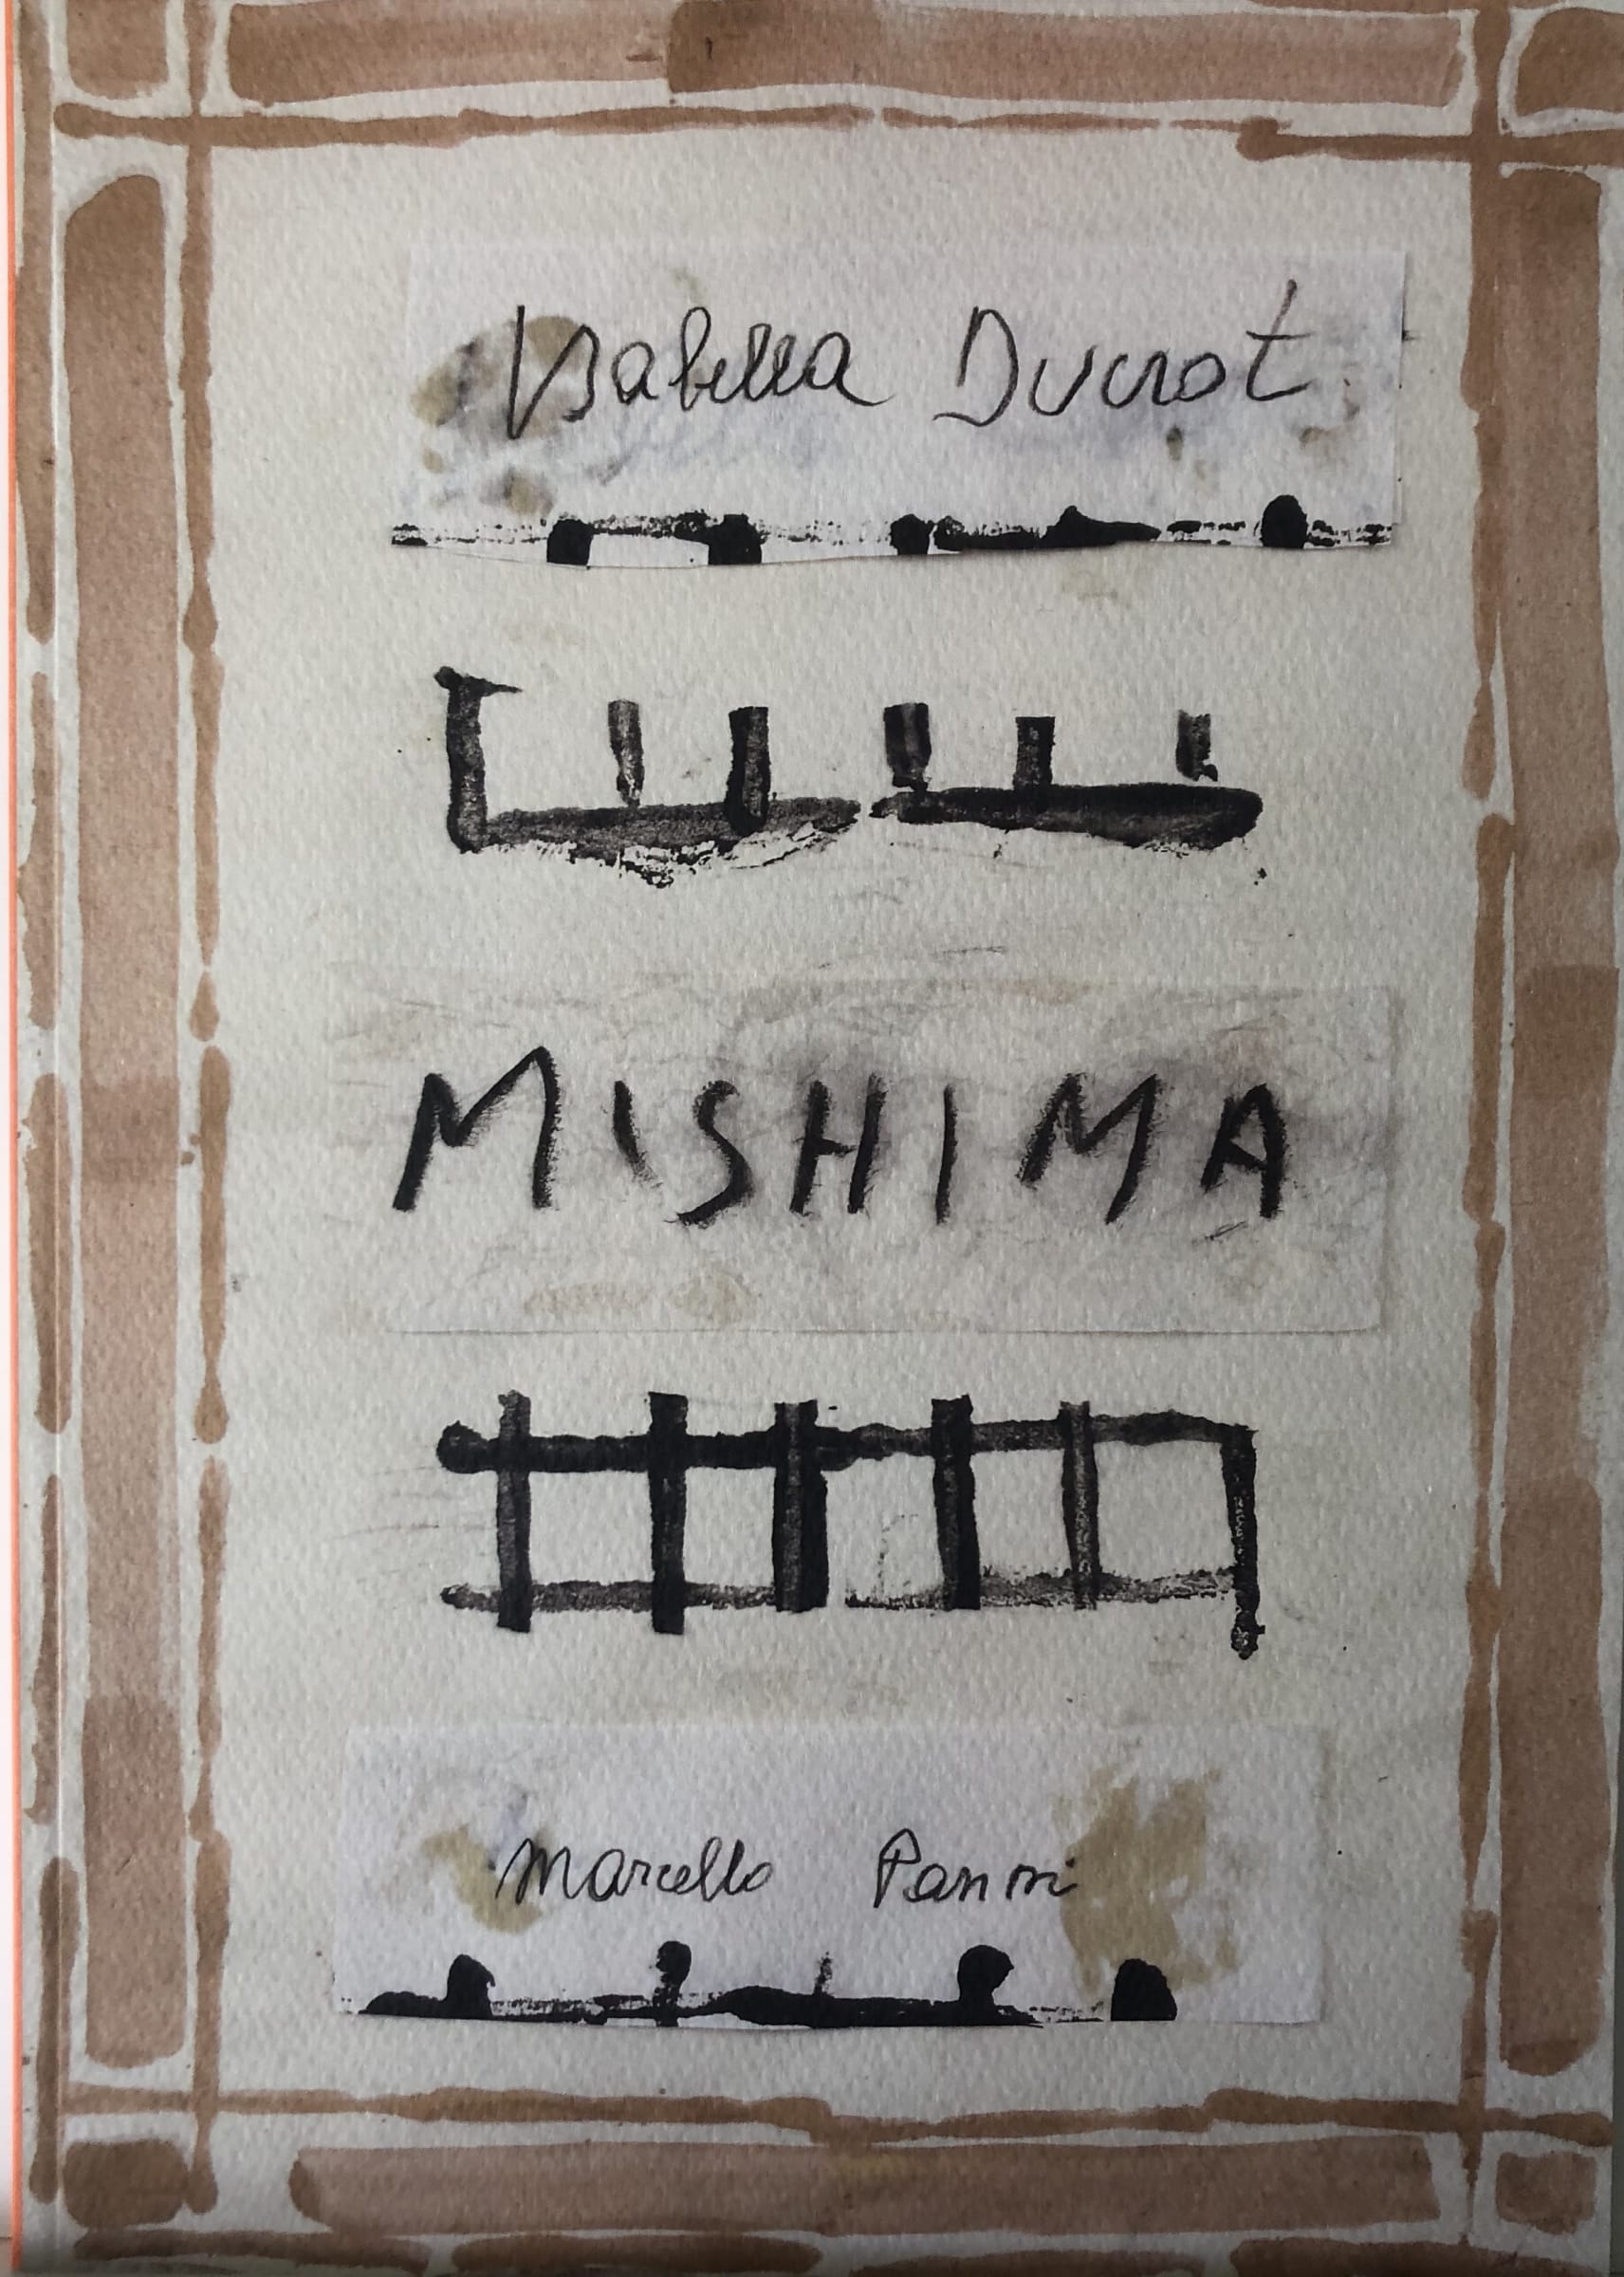 Isabella Ducrot
MISHIMA
Marcello Panni